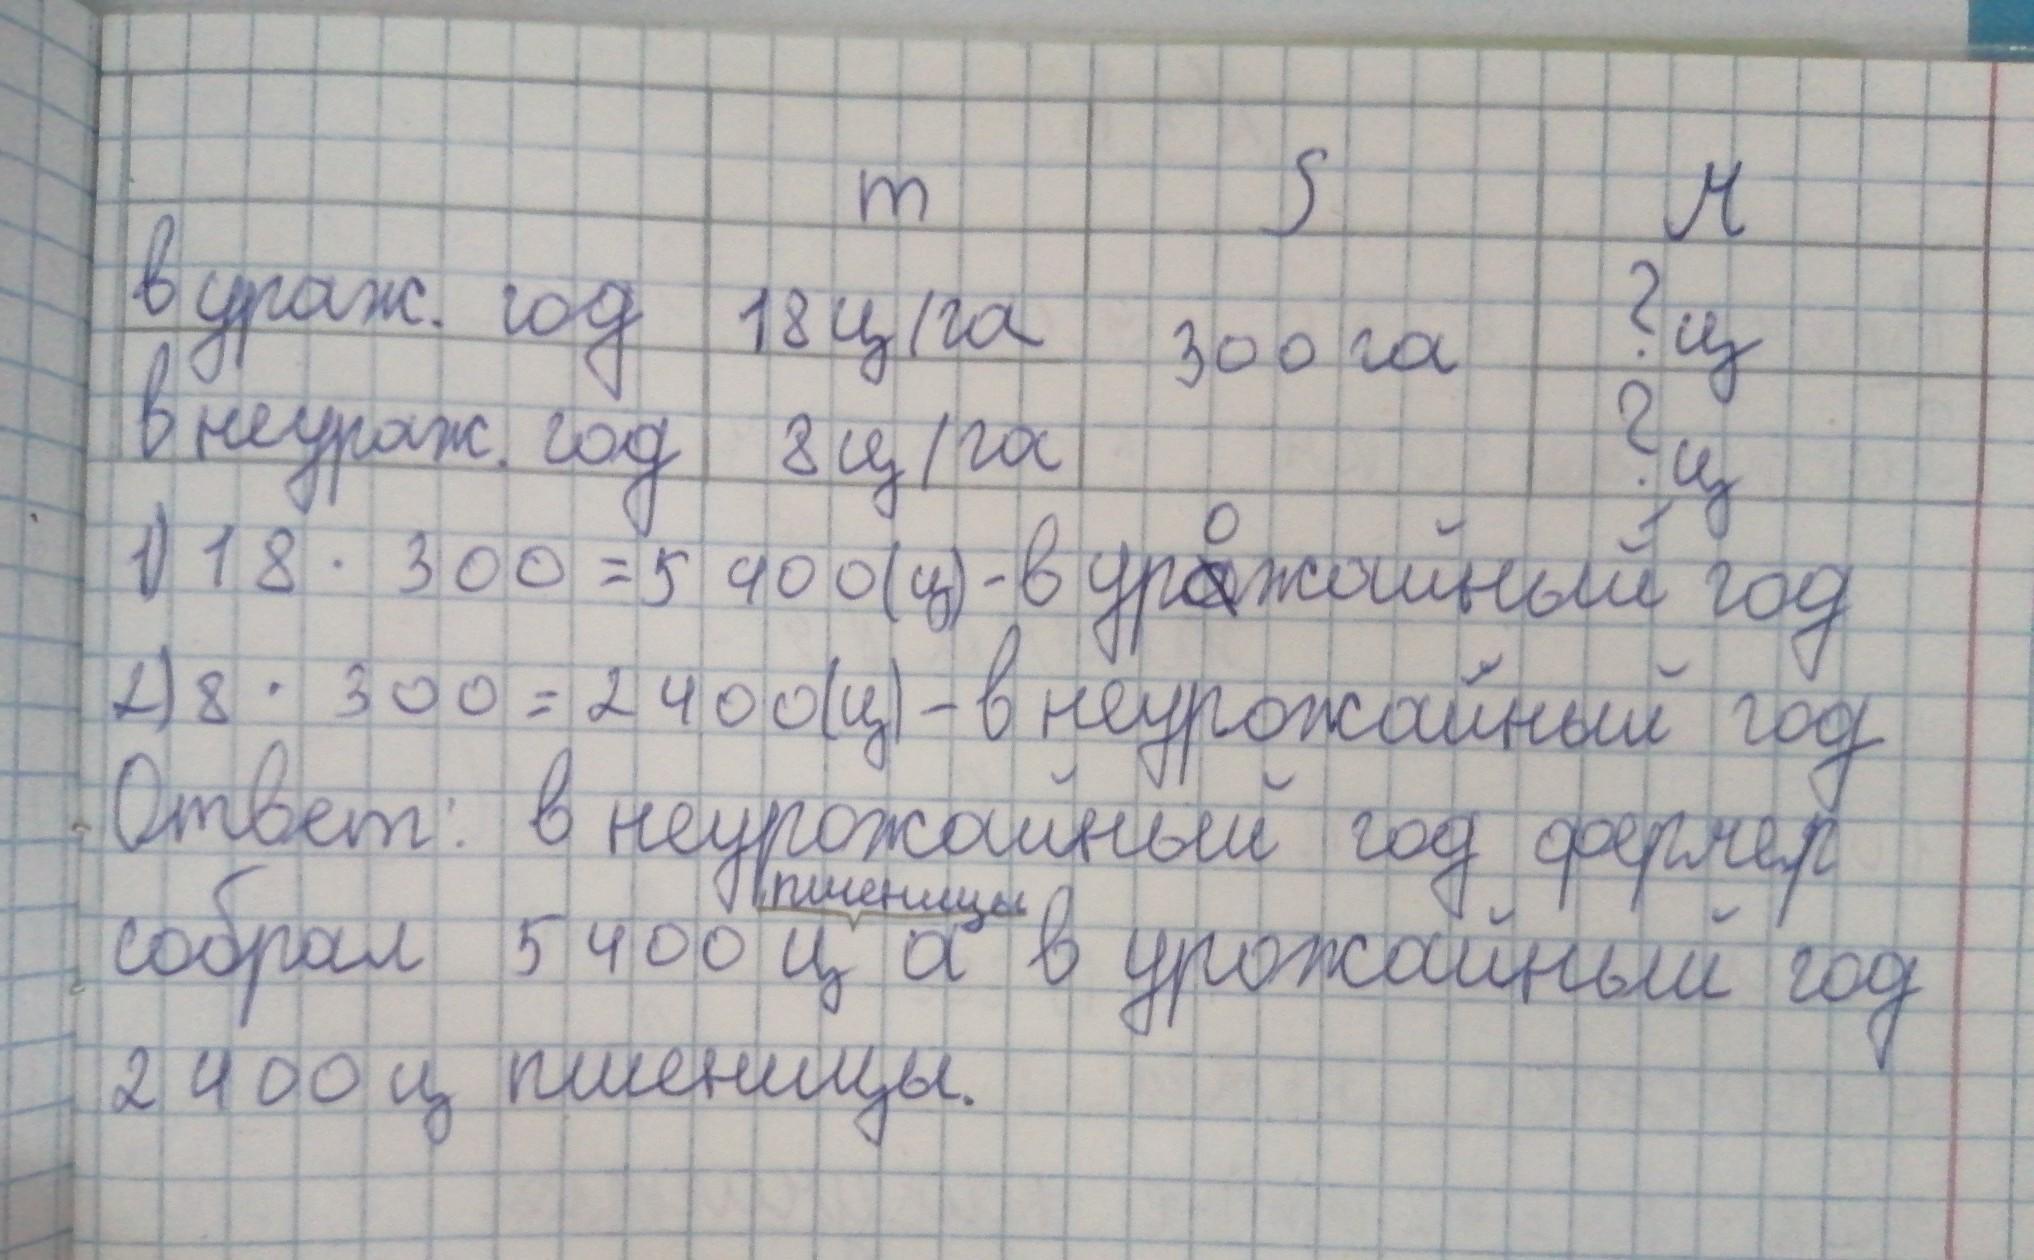 m S М
в ураж. год 18ц/га 300 га ?ц
в неураж. год 8ц/га ?ц
1) 18 · 300 = 5 400(ц) - в урожайный год
2) 8 · 300 = 2 400(ц) - в неурожайный год
Ответ: в неурожайный год фермер
собрал 5 400 ц пшеницы а в урожайный год
2 400 ц пшеницы.